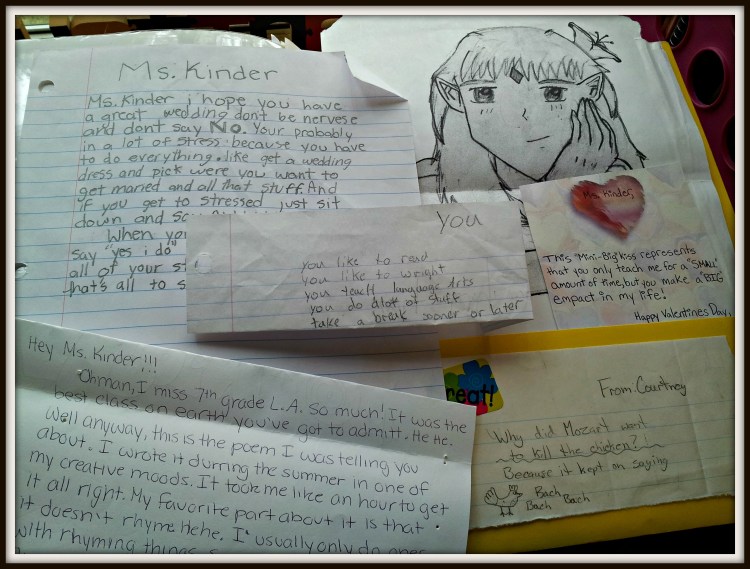 Ms. Kinder
Ms. Kinder i hope you have
a great wedding dont be nervese
and dont say No. Your probably
in a lot of stress because you have
to do everything. like get a wedding
dress and pick were you want to
get maried and all that stuff. And
if you get to stressed just sit
down and
When you
say "yes i do"
all of your st
that's all to s
YOU
you like to read
you like to wright
you teach language Arts
you do alot of stuff
take a break sooner or later
Ms. Kinder,
This "Mini-Big" kiss represents
that you only teach me for a "SMALL"
amount of time, but you make a "BIG"
empact in my life!
Happy Valentines Day,
Hey Ms. Kinder!!!
Ohman, I miss 7th grade L.A. so much! It was the
best class on earth you've got to admitt. He He.
Well anyway, this is the poem I was telling you
about. I wrote it during the summer in one of
my creative moods. It took me like an hour to get
it all right. My favorite part about it is that
it doesn't rhyme Hehe. I usually only do ones
with rhyming things
reat!
From: Courtney
Why did Mozart want
to kill the chicken?
Because it kept on saying
Bach
Bach Bach